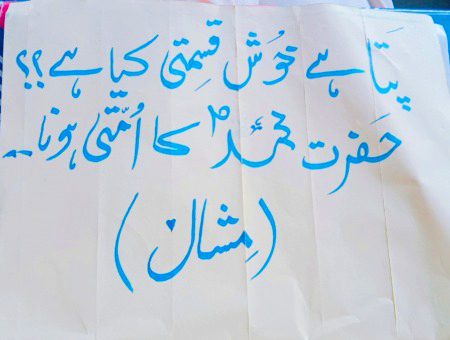 پتا ہے خُوش قسمتی کیا ہے؟؟
حضرت محمدؐ کا اُمّتی ہونا۔۔
(مِشال)